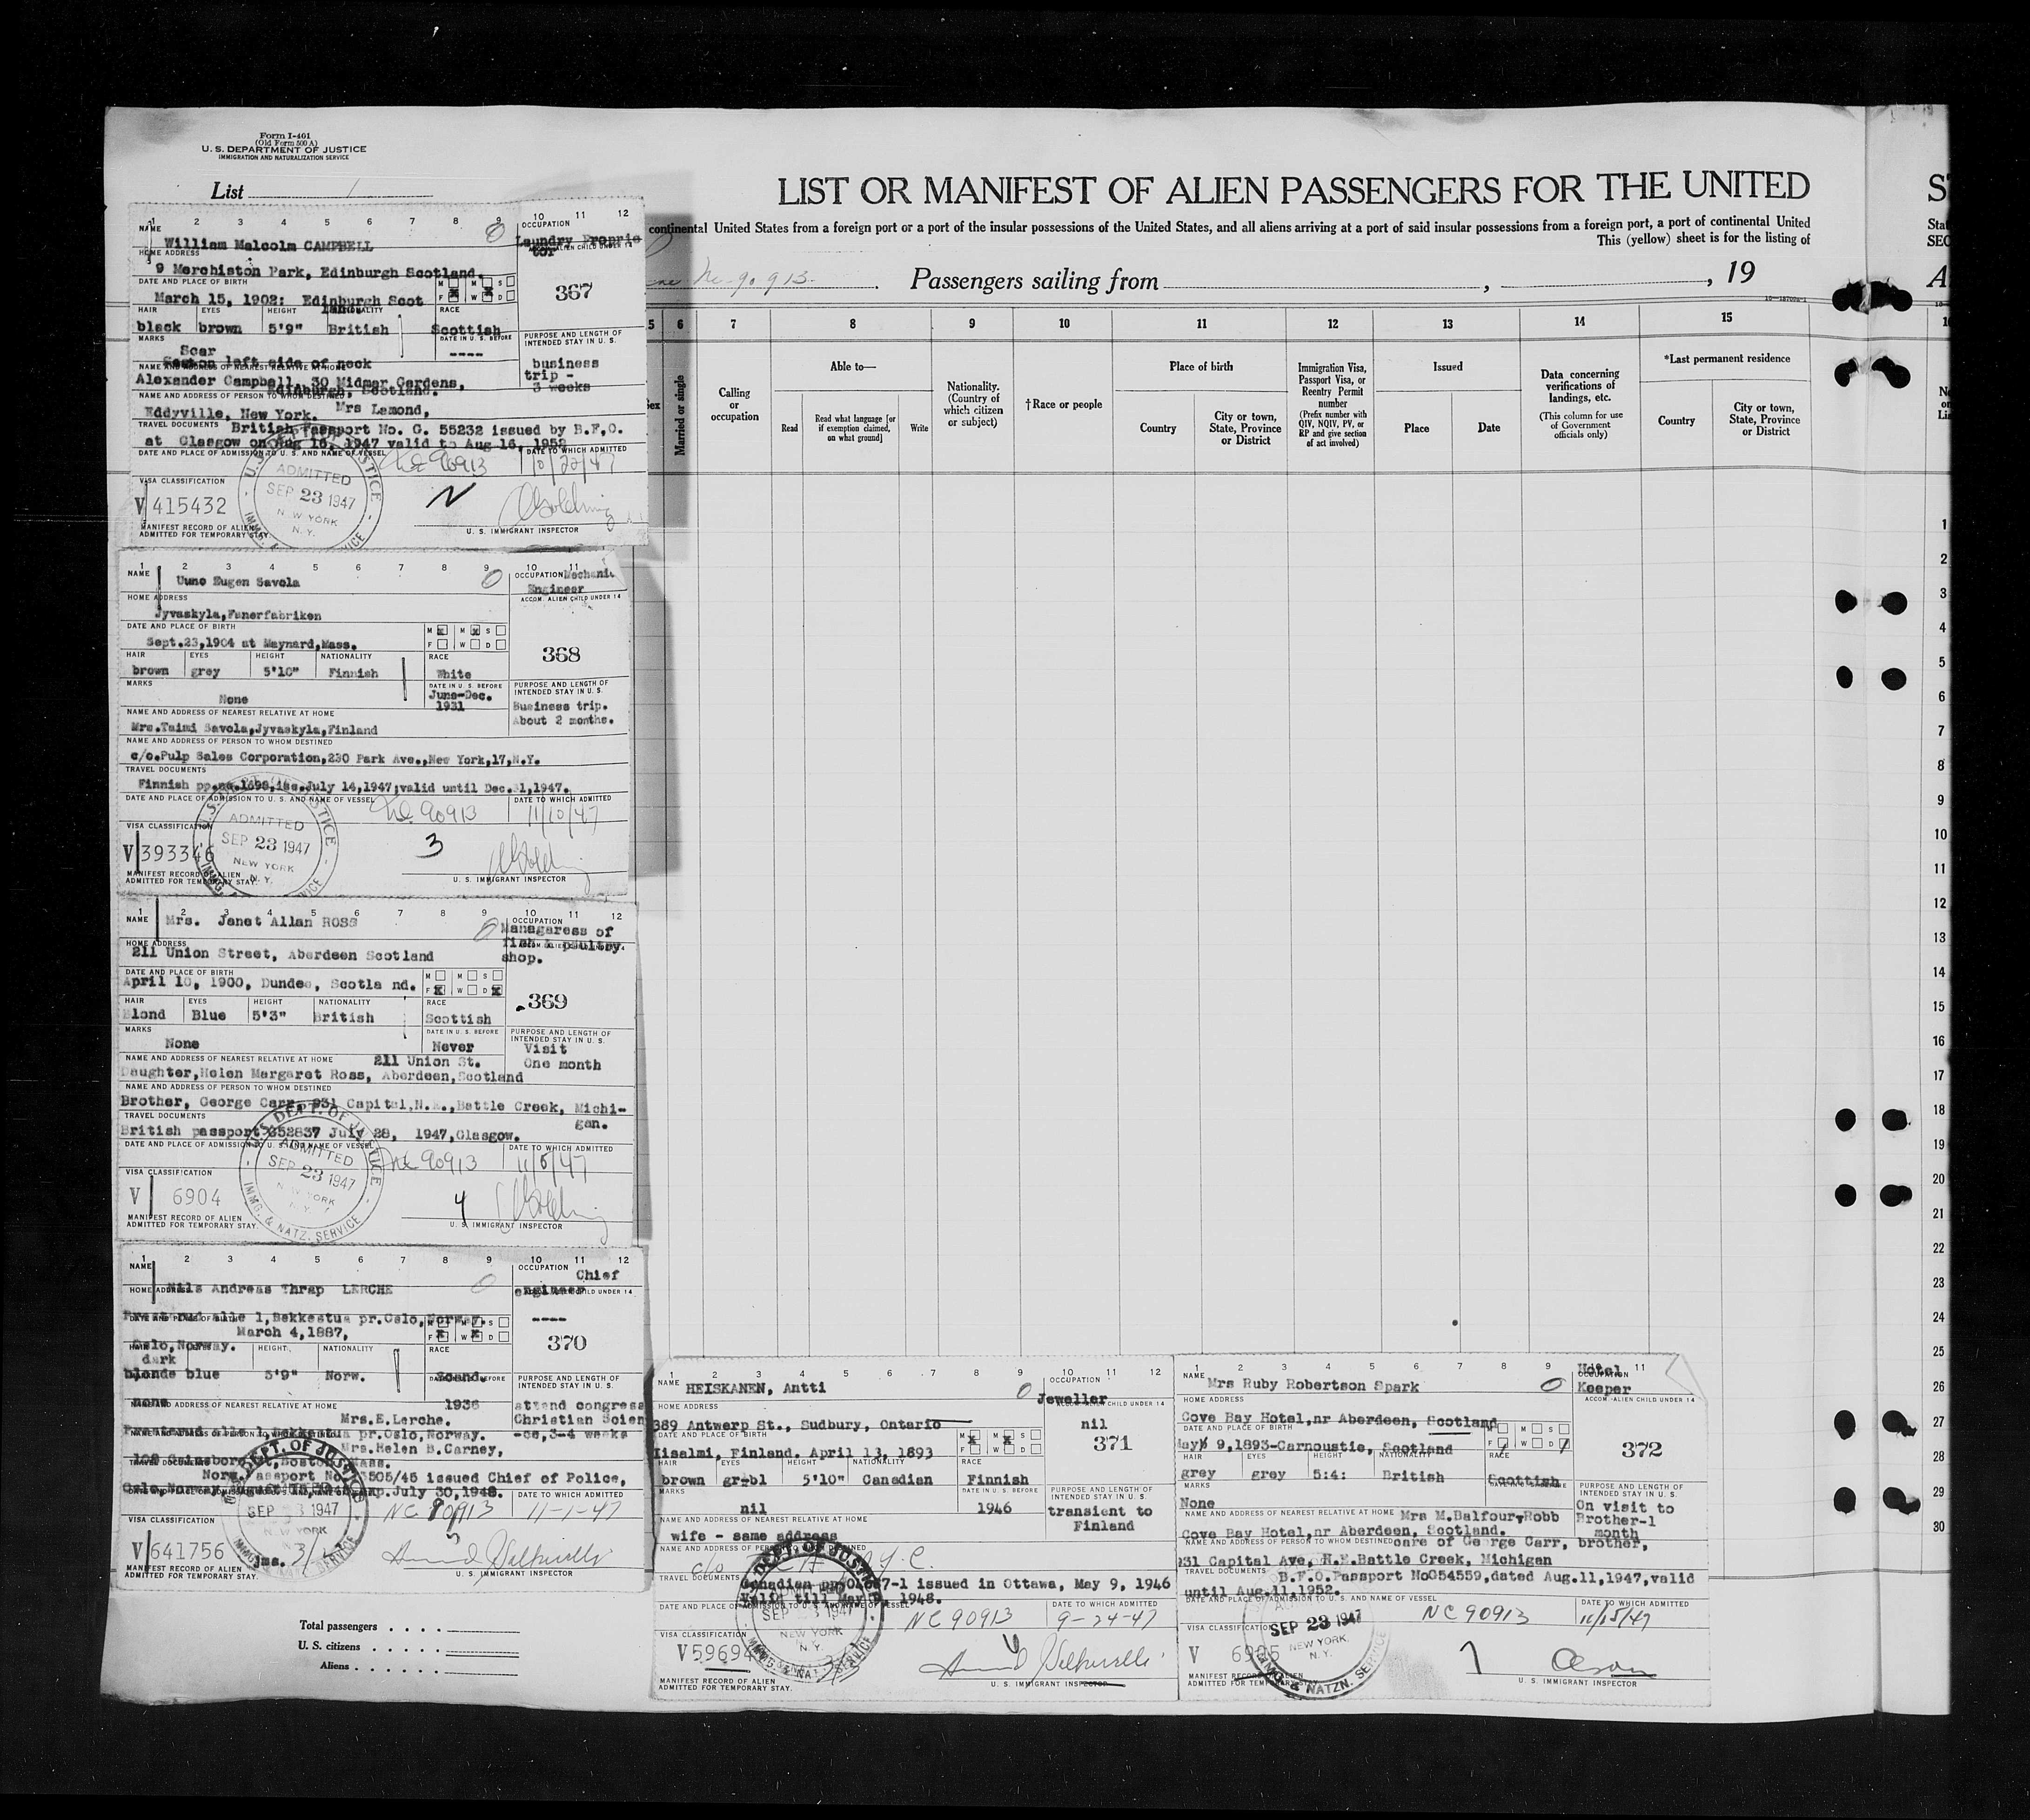 Form I-401
(Old Form 500 A)
U. S. DEPARTMENT OF JUSTICE
IMMIGRATION AND NATURALIZATION SERVICE
List 1
LIST OR MANIFEST OF ALIEN PASSENGERS FOR THE UNITED
continental United States from a foreign port or a port of the insular possessions of the United States, and all aliens arriving at a port of said insular possessions from a foreign port, a port of continental United
This (yellow) sheet is for the listing of
No. 90913. Passengers sailing from , , 19
5 6 7 8 9 10 11 12 13 14 15
Married or single
Calling or occupation
Able to—
Read
Read what language [or if exemption claimed, on what ground]
Write
Nationality. (Country of which citizen or subject)
†Race or people
Place of birth
Country
City or town, State, Province or District
Immigration Visa, Passport Visa, or Reentry Permit number
(Prefix number with QIV, NQIV, PV, or RP and give section of act involved)
Issued
Place
Date
Data concerning verifications of landings, etc.
(This column for use of Government officials only)
*Last permanent residence
Country
City or town, State, Province or District
1
2
3
4
5
6
7
8
9
10
11
12
13
14
15
16
17
18
19
20
21
22
23
24
25
26
27
28
29
30
1 2 3 4 5 6 7 8 9 10 11 12
NAME
William Malcolm CAMPBELL
OCCUPATION
Laundry Proprie
tor
HOME ADDRESS
9 Merchiston Park, Edinburgh Scotland.
DATE AND PLACE OF BIRTH
March 15, 1902: Edinburgh Scot
M F M W S D
367
HAIR EYES HEIGHT NATIONALITY RACE
black brown 5'9" British Scottish
MARKS
Scar
left side of neck
DATE IN U. S. BEFORE
----
PURPOSE AND LENGTH OF INTENDED STAY IN U. S.
business
trip -
3 weeks
NAME AND ADDRESS OF NEAREST RELATIVE AT HOME
Alexander Campbell, 30 Midmar Gardens,
Edinburgh, Scotland.
NAME AND ADDRESS OF PERSON TO WHOM DESTINED
Mrs Lamond,
Eddyville, New York.
TRAVEL DOCUMENTS
British Passport No. C. 55232 issued by B.F.O.
at Glasgow on Aug 16, 1947 valid to Aug 16, 1952
DATE AND PLACE OF ADMISSION TO U. S. AND NAME OF VESSEL
NC 90913
DATE TO WHICH ADMITTED
10/22/47
VISA CLASSIFICATION
V 415432
ADMITTED
SEP 23 1947
NEW YORK
N. Y.
MANIFEST RECORD OF ALIEN
ADMITTED FOR TEMPORARY STAY.
U. S. IMMIGRANT INSPECTOR
1 2 3 4 5 6 7 8 9 10 11
NAME
Uuno Eugen Savola
OCCUPATION
Mechanic
Engineer
ACCOM. ALIEN CHILD UNDER 14
HOME ADDRESS
Jyvaskyla,Fanerfabriken
DATE AND PLACE OF BIRTH
Sept.23,1904 at Maynard,Mass.
M F M W S D
368
HAIR EYES HEIGHT NATIONALITY RACE
brown grey 5'10" Finnish White
MARKS
None
DATE IN U. S. BEFORE
June-Dec.
1931
PURPOSE AND LENGTH OF INTENDED STAY IN U. S.
Business trip.
About 2 months.
NAME AND ADDRESS OF NEAREST RELATIVE AT HOME
Mrs.Taimi Savola,Jyvaskyla,Finland
NAME AND ADDRESS OF PERSON TO WHOM DESTINED
c/o.Pulp Sales Corporation,230 Park Ave.,New York,17,N.Y.
TRAVEL DOCUMENTS
Finnish pp.no.1698,iss.July 14,1947,valid until Dec.31,1947.
DATE AND PLACE OF ADMISSION TO U. S. AND NAME OF VESSEL
NC 90913
DATE TO WHICH ADMITTED
11/10/47
VISA CLASSIFICATION
V 393346
ADMITTED
SEP 23 1947
NEW YORK
N. Y.
3
MANIFEST RECORD OF ALIEN
ADMITTED FOR TEMPORARY STAY.
U. S. IMMIGRANT INSPECTOR
1 2 3 4 5 6 7 8 9 10 11 12
NAME
Mrs. Janet Allan ROSS
OCCUPATION
Manageress of
fish & poultry
shop.
HOME ADDRESS
211 Union Street, Aberdeen Scotland
DATE AND PLACE OF BIRTH
April 10, 1900, Dundee, Scotla nd.
M F M W S D
369
HAIR EYES HEIGHT NATIONALITY RACE
Blond Blue 5'3" British Scottish
MARKS
None
DATE IN U. S. BEFORE
Never
PURPOSE AND LENGTH OF INTENDED STAY IN U. S.
Visit
One month
NAME AND ADDRESS OF NEAREST RELATIVE AT HOME
211 Union St.
Daughter,Helen Margaret Ross, Aberdeen,Scotland
NAME AND ADDRESS OF PERSON TO WHOM DESTINED
Brother, George Carr, 231 Capital,N.E.,Battle Creek, Michi-
gan.
TRAVEL DOCUMENTS
British passport C52837 July 28, 1947,Glasgow.
DATE AND PLACE OF ADMISSION TO U. S. AND NAME OF VESSEL
NC 90913
DATE TO WHICH ADMITTED
11/5/47
VISA CLASSIFICATION
V 6904
U.S. DEPT. OF JUSTICE
ADMITTED
SEP 23 1947
NEW YORK
N. Y.
IMMG. & NATZ. SERVICE
4
MANIFEST RECORD OF ALIEN
ADMITTED FOR TEMPORARY STAY.
U. S. IMMIGRANT INSPECTOR
1 2 3 4 5 6 7 8 9 10 11 12
NAME
Nils Andreas Thrap LERCHE
OCCUPATION
Chief
engineer
----
HOME ADDRESS
1,Bekkestua pr.Oslo,Norway.
DATE AND PLACE OF BIRTH
March 4,1887,
Oslo,Norway.
M F M W S D
370
HAIR EYES HEIGHT NATIONALITY RACE
dark
blonde blue 5'9" Norw. Scand.
none
1936
PURPOSE AND LENGTH OF INTENDED STAY IN U. S.
attend congress
Christian Scien
-ce,3-4 weeks
NAME AND ADDRESS OF NEAREST RELATIVE AT HOME
Mrs.E.Lerche.
pr.Oslo,Norway.
Mrs.Helen B.Carney,
108 Gainsboro St,Boston Mass.
Norw.Passport No. 3505/45 issued Chief of Police,
Oslo,Norway July 30,1948.
NC 90913
DATE TO WHICH ADMITTED
11-1-47
VISA CLASSIFICATION
V 641756
DEPT. OF JUSTICE
SEP 23 1947
NEW YORK
MANIFEST RECORD OF ALIEN
ADMITTED FOR TEMPORARY STAY.
U. S. IMMIGRANT INSPECTOR
Total passengers
U. S. citizens
Aliens
1 2 3 4 5 6 7 8 9 10 11 12
NAME
HEISKANEN, Antti
OCCUPATION
Jeweller
nil
HOME ADDRESS
389 Antwerp St., Sudbury, Ontario
DATE AND PLACE OF BIRTH
Iisalmi, Finland. April 13, 1893
M F M W S D
371
HAIR EYES HEIGHT NATIONALITY RACE
brown gr-bl 5'10" Canadian Finnish
MARKS
nil
DATE IN U. S. BEFORE
1946
PURPOSE AND LENGTH OF INTENDED STAY IN U. S.
transient to
Finland
NAME AND ADDRESS OF NEAREST RELATIVE AT HOME
wife - same address
NAME AND ADDRESS OF PERSON TO WHOM DESTINED
TRAVEL DOCUMENTS
Canadian issued in Ottawa, May 9, 1946
Valid till May 1948.
DATE AND PLACE OF ADMISSION TO U. S. AND NAME OF VESSEL
NC 90913
DATE TO WHICH ADMITTED
9-24-47
VISA CLASSIFICATION
V 59694
DEPT. OF JUSTICE
ADMITTED
SEP 23 1947
NEW YORK
N. Y.
MANIFEST RECORD OF ALIEN
ADMITTED FOR TEMPORARY STAY.
U. S. IMMIGRANT INSPECTOR
1 2 3 4 5 6 7 8 9 10 11
NAME
Mrs Ruby Robertson Spark
OCCUPATION
Hotel
Keeper
ACCOM. ALIEN CHILD UNDER 14
HOME ADDRESS
Cove Bay Hotel,nr Aberdeen, Scotland
DATE AND PLACE OF BIRTH
May 9,1893-Carnoustie, Scotland
M F M W S D
372
HAIR EYES HEIGHT NATIONALITY RACE
grey grey 5:4: British Scottish
MARKS
None
PURPOSE AND LENGTH OF INTENDED STAY IN U. S.
On visit to
Brother-1
month
NAME AND ADDRESS OF NEAREST RELATIVE AT HOME
Mrs M.Balfour-Robb
Cove Bay Hotel,nr Aberdeen, Scotland.
NAME AND ADDRESS OF PERSON TO WHOM DESTINED
care of George Carr, brother,
231 Capital Ave, N.E.Battle Creek, Michigan
TRAVEL DOCUMENTS
B.F.O.Passport NoC54559,dated Aug.11,1947,valid
until Aug.11,1952.
DATE AND PLACE OF ADMISSION TO U. S. AND NAME OF VESSEL
NC 90913
DATE TO WHICH ADMITTED
11/15/47
VISA CLASSIFICATION
V 6905
SEP 23 1947
NEW YORK.
N.Y.
IMMG. & NATZN. SERVICE
7
Olson
MANIFEST RECORD OF ALIEN
ADMITTED FOR TEMPORARY STAY.
U. S. IMMIGRANT INSPECTOR